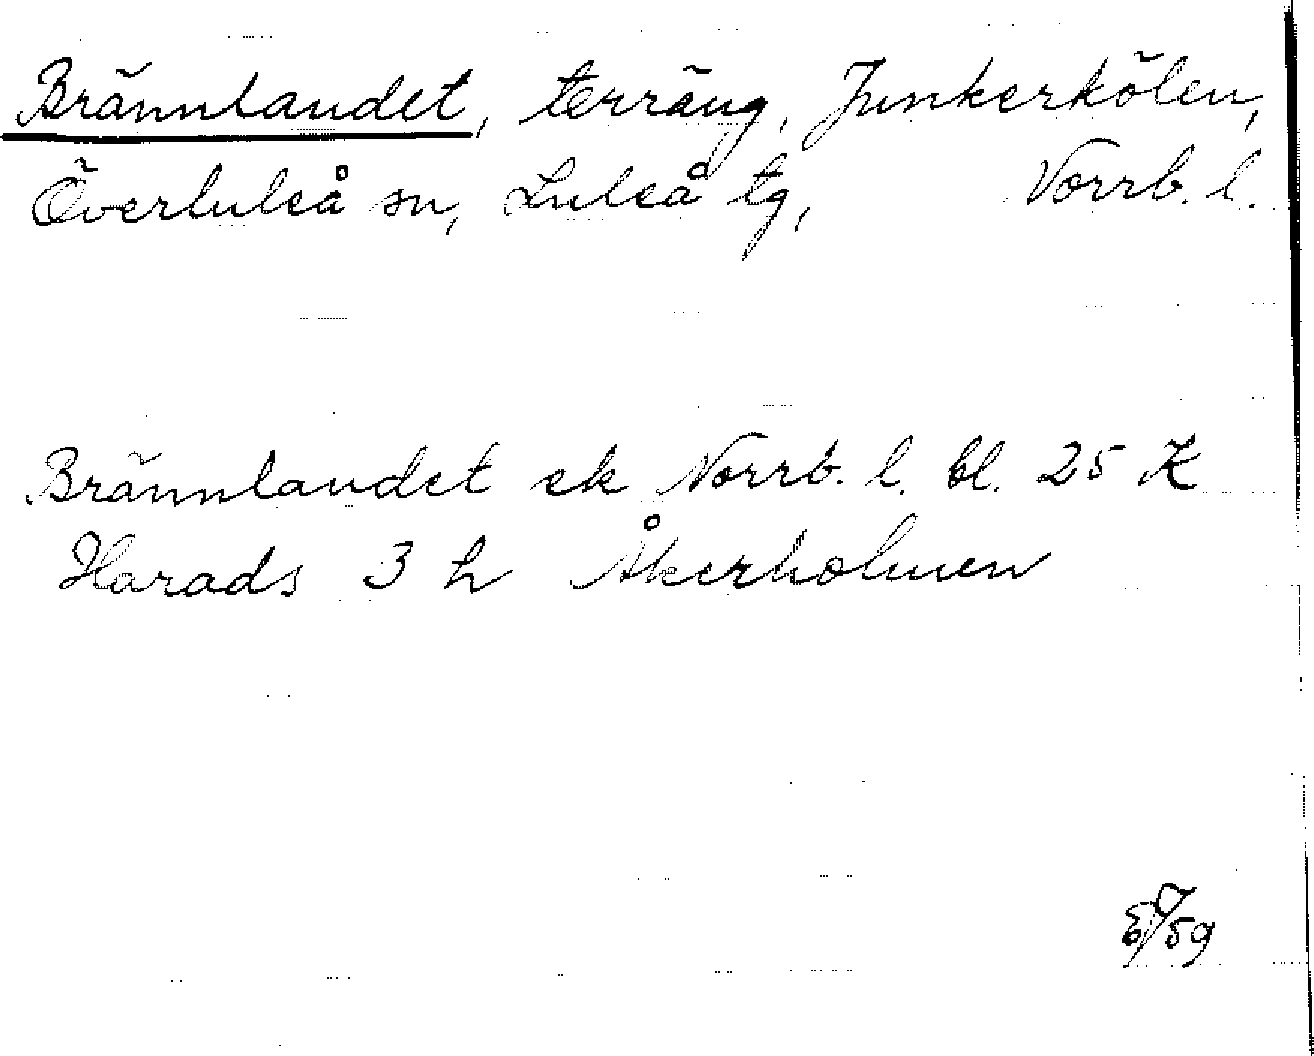 Brännlandet, terräng, Junkerkölen,
Överluleå sn, Luleå tg, Norrb. l.
Brännlandet ek Norrb. l. bl. 25 K
Harads 3 h Åkerholmen
/59